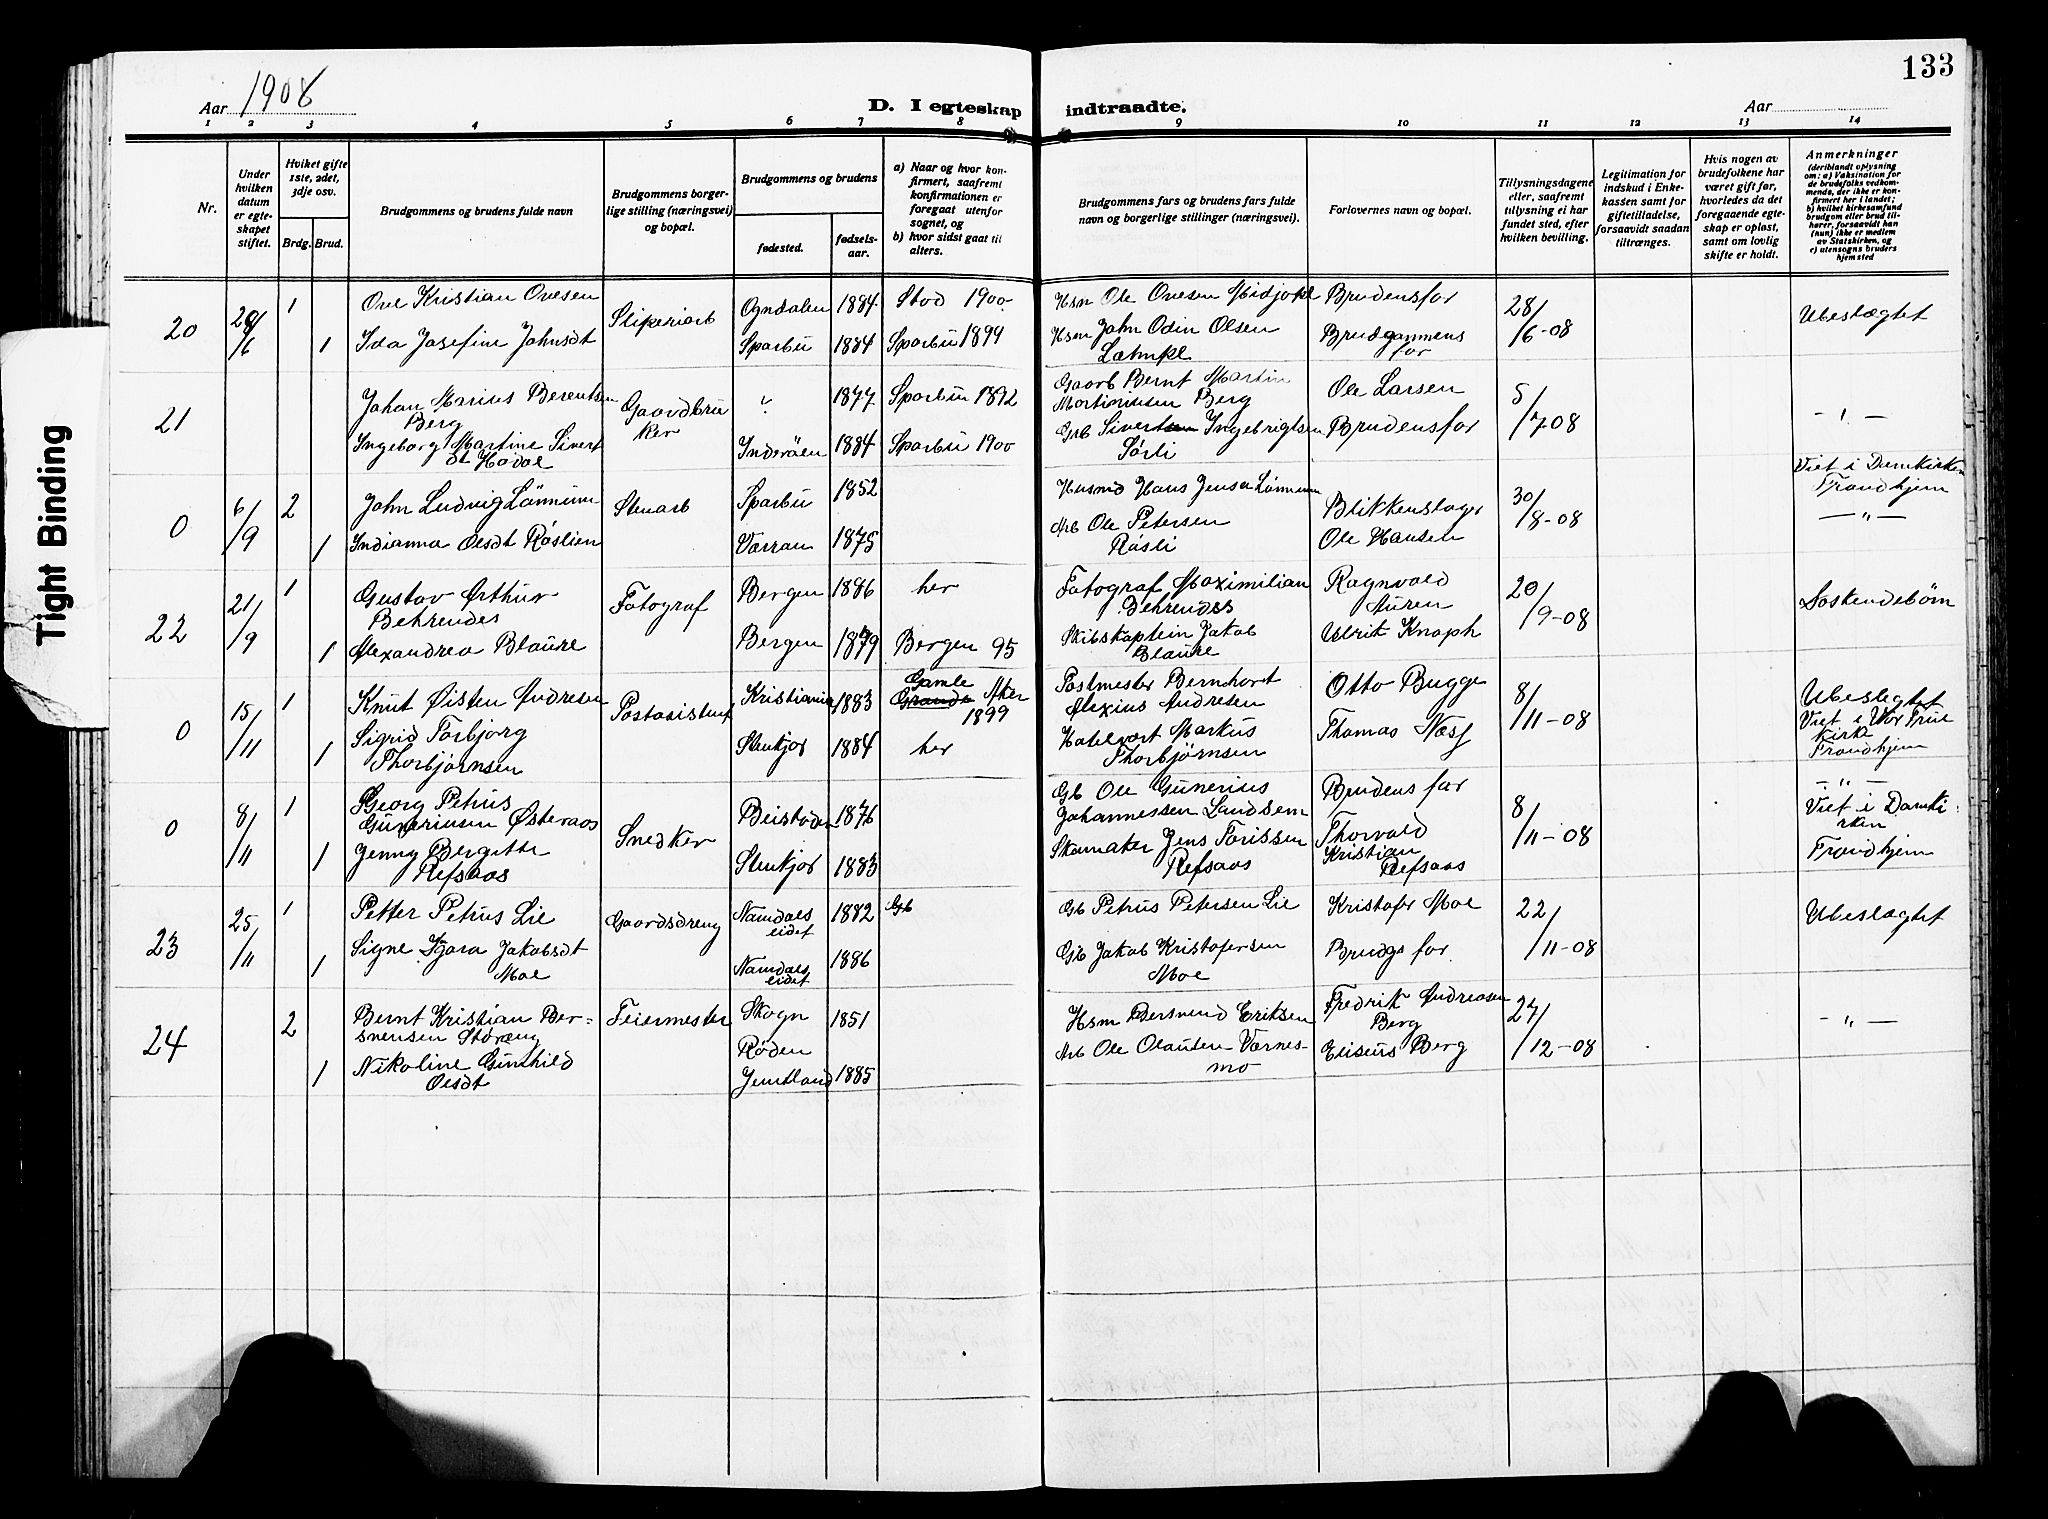 133
Tight Binding
Aar 1908
D. I egteskap indtraadte.
Aar
1 2 3 4 5 6 7 8 9 10 11 12 13 14
Nr.
Under hvilken datum er egte-skapet stiftet.
Hviket gifte 1ste, 2det, 3dje osv.
Brdg. Brud.
Brudgommens og brudens fulde navn
Brudgommens borger-lige stilling (næringsvei) og bopæl.
Brudgommens og brudens
fødested.
fødsels-aar.
a) Naar og hvor kon-firmert, saafremt konfirmationen er foregaat utenfor sognet, og
b) hvor sidst gaat til alters.
Brudgommens fars og brudens fars fulde navn og borgerlige stillinger (næringsvei).
Forlovernes navn og bopæl.
Tillysningsdagene eller, saafremt tillysning ei har fundet sted, efter hvilken bevilling.
Legitimation for indskud i Enke-kassen samt for giftetilladelse, forsaavidt saadan tiltrænges.
Hvis nogen av brudefolkene har været gift før, hvorledes da det foregaaende egte-skap er opløst, samt om lovlig skifte er holdt.
Anmerkninger
(deriblandt oplysning om: a) Vaksination for de brudefolks vedkom-mende, der ikke er kon-firmert her i landet;
b) hvilket kirkesamfund brudgom eller brud til-hører, forsaavidt han (hun) ikke er medlem av Statskirken, og
c) utensogns bruders hjemsted
20 28/6 1 Ove Kristian Ovesen Sliperiarb Ogndalen 1884 Stod 1900 Hsm Ole Ovesen Brudensfar 28/6-08 Ubeslægtet
1 Ida Josefine Jahnsdt Sparbu 1884 Sparbu 1899 Hsm Jahn Odin Olsen Brudgommens far
21 Johan Marius Berentsen Berg Gaardbruker " 1877 Sparbu 1892 Gaarb Bernt Martin Martiniusen Berg Ole Larsen 5/7 08 - " -
Ingeborg Martine Sivertsdt Inderöen 1884 Sparbu 1900 Grb Sivert Ingebrigtsen Sørli Brudensfar
0 6/9 2 John Ludvig Lönnum Stenarb Sparbu 1852 Husmd Hans Jensen Lönnum Blikkenslager Ole Hansen 30/8-08 Viet i Domkirken Trondhjem - " -
1 Indianna Olsdt Röslien Værran 1875 Arb Ole Petersen Røsli
22 21/9 1 Gustav Arthur Behrendes Fotograf Bergen 1886 her Fotograf Maximilian Behrendes Ragnvald Auren 20/9-08 Søskendebörn
1 Alexandrea Blaure Bergen 1879 Bergen 95 Skibskaptein Jakob Blaure Ulrik Knoph
0 15/11 1 Knut Øisten Andresen Postasistent Kristiania 1883 Gamle Aker 1899 Postmester Bernhart Alexius Andresen Otto Bugge 8/11-08 Ubeslegtet Viet i Vor Frue Kirke Trondhjem
1 Sigrid Torbjørg Thorbjørnsen Stenkjær 1884 her Hotelvært Markus Thorbjørnsen Thomas Næss
0 8/11 1 Georg Petrus Guneriusen Østeraas Snedker Beistaden 1876 Gb Ole Gunerius Johannessen Landsem Brudens far 8/11-08 - " - Viet i Domkirken Trondhjem
1 Jenny Bergitte Refsaas Stenkjær 1883 Skomaker Jens Torissen Refsaas Thorvald Kristian Refsaas
23 25/11 1 Petter Petrus Lie Gaardsdreng Namdalseidet 1882 Gb Petrus Petersen Lie Kristofer Moe 22/11-08 Ubeslægtet
1 Signe Jakobsdt Moe Namdalseidet 1886 Gb Jakob Kristofersen Moe Brudgs far
24 2 Bernt Kristian Bersvensen Størseng Feiermester Skogn 1851 Hsm Bersvend Eriksen Fredrik Andreasen Berg 27/12-08 - " -
1 Nikoline Gunhild Olsdt Røden Jemtland 1885 Arb Ole Olausen Værnesmo Eliseus Berg